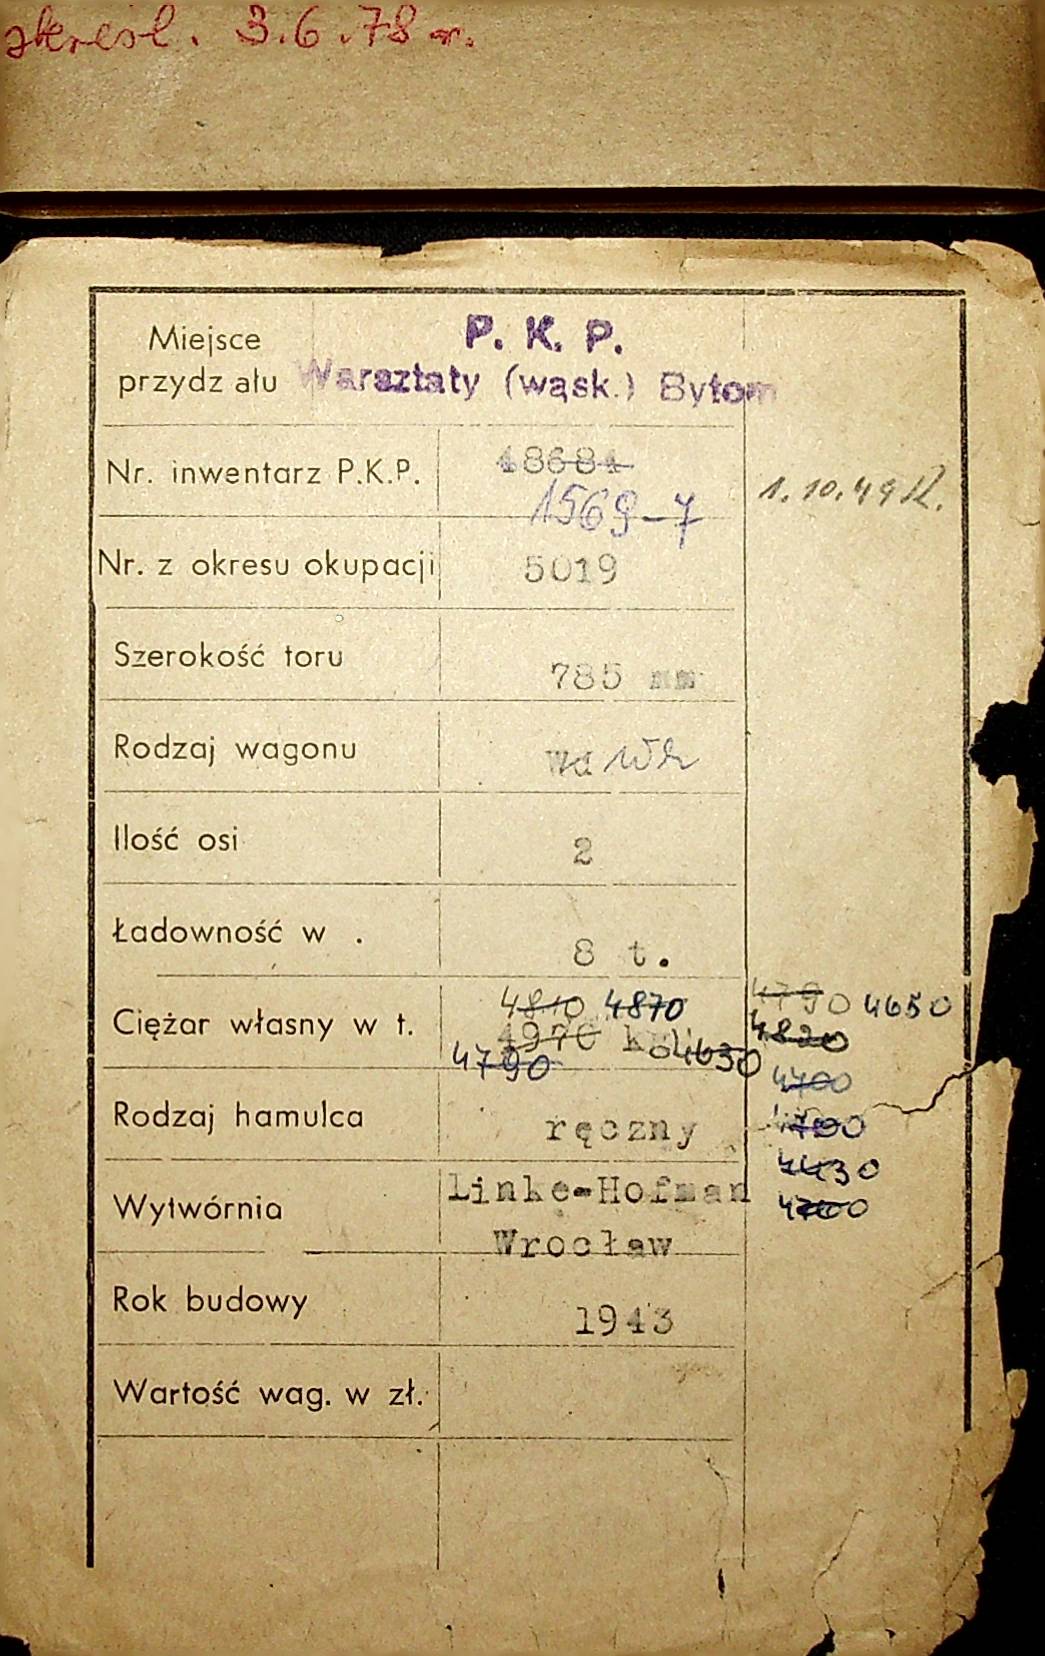 skreśl. 3.6.78 r.
Miejsce przydz ału P. K. P.
Warsztaty (wąsk.) Bytom
Nr. inwentarz P.K.P. 48684
1569-7 1.10.49 R.
Nr. z okresu okupacji 5019
Szerokość toru 785 mm
Rodzaj wagonu Wd Wh
Ilość osi 2
Ładowność w . 8 t.
Ciężar własny w t. 4810 4870 4790 4650
4970 4820
4790 4630
4700
Rodzaj hamulca ręczny 4700
4430
Wytwórnia Linke-Hofman 4700
Wrocław
Rok budowy 1943
Wartość wag. w zł.